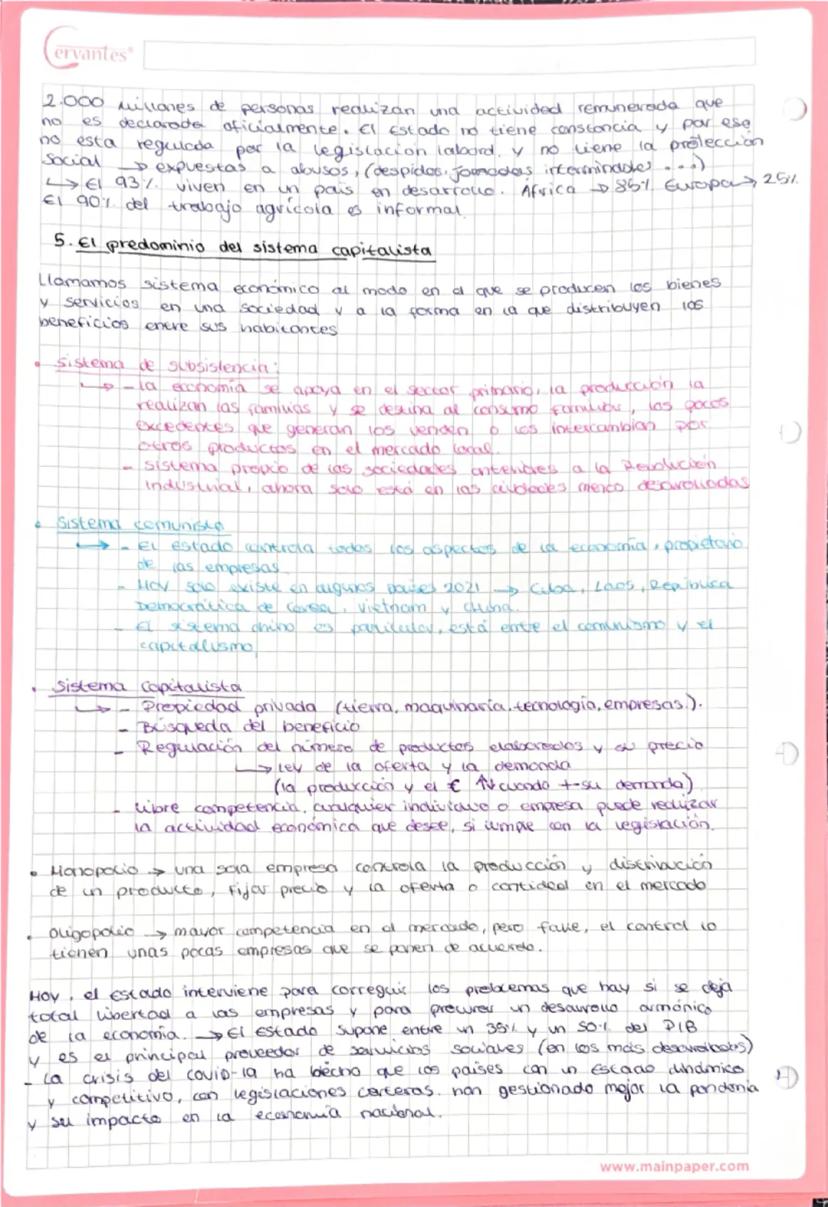 Cervantes®
2.000 millones de personas realizan una actividad remunerada que
no es declarada oficialmente. El Estado no tiene constancia y por eso
no esta regulada por la legislacion laboral, y no tiene la protección
social → expuestas a abusos, (despidos, jornadas interminables ...)
↳ El 93% viven en un pais en desarrollo. África → 85% Europa → 25%
El 90% del trabajo agrícola es informal
5. El predominio del sistema capitalista
Llamamos sistema económico al modo en el que se producen los bienes
y servicios en una sociedad y a la forma en la que distribuyen los
beneficios entre sus habitantes
• Sistema de subsistencia:
↳ - La economía se apoya en el sector primario, la producción la
realizan las familias y se destina al consumo familiar, los pocos
excedentes que generan los venden o los intercambian por
otros productos en el mercado local.
- Sistema propio de las sociedades anteriores a la Revolución
Industrial, ahora solo está en las ciudades menos desarrolladas
• Sistema comunista
↳ - El estado controla todos los aspectos de la economía, propietario
de las empresas
- Hoy solo existe en algunos países 2021 → Cuba, Laos, República
Democrática de Corea, Vietnam y China.
- El sistema chino es particular, está entre el comunismo y el
capitalismo
• Sistema capitalista
↳ - Propiedad privada (tierra, maquinaria, tecnología, empresas.).
- Búsqueda del beneficio
- Regulación del número de productos elaborados y su precio
↳ Ley de la oferta y la demanda
(la producción y el € ↑↓ cuando +-su demanda)
- Libre competencia, cualquier individuo o empresa puede realizar
la actividad económica que desee, si cumple con la legislación.
• Monopolio → una sola empresa controla la producción y distribución
de un producto, fijar precio y la oferta o cantidad en el mercado
• Oligopolio → mayor competencia en el mercado, pero falle, el control lo
tienen unas pocas empresas que se ponen de acuerdo.
Hoy, el estado interviene para corregir los problemas que hay si se deja
total libertad a las empresas y para procurar un desarrollo armónico
de la economía. → El Estado supone entre un 35% y un 50% del PIB
y es el principal proveedor de servicios sociales (en los más desarrollados)
- La crisis del covid-19 ha hecho que los países con un estado dinámico
y competitivo, con legislaciones certeras, han gestionado mejor la pandemia
y su impacto en la economía nacional.
www.mainpaper.com